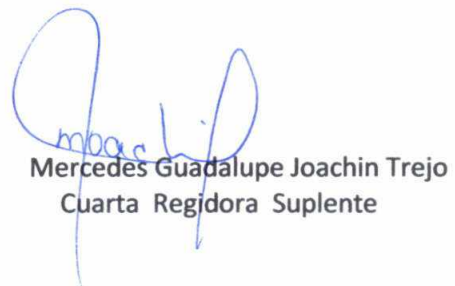 Mercedes Guadalupe Joachin Trejo
Cuarta Regidora Suplente